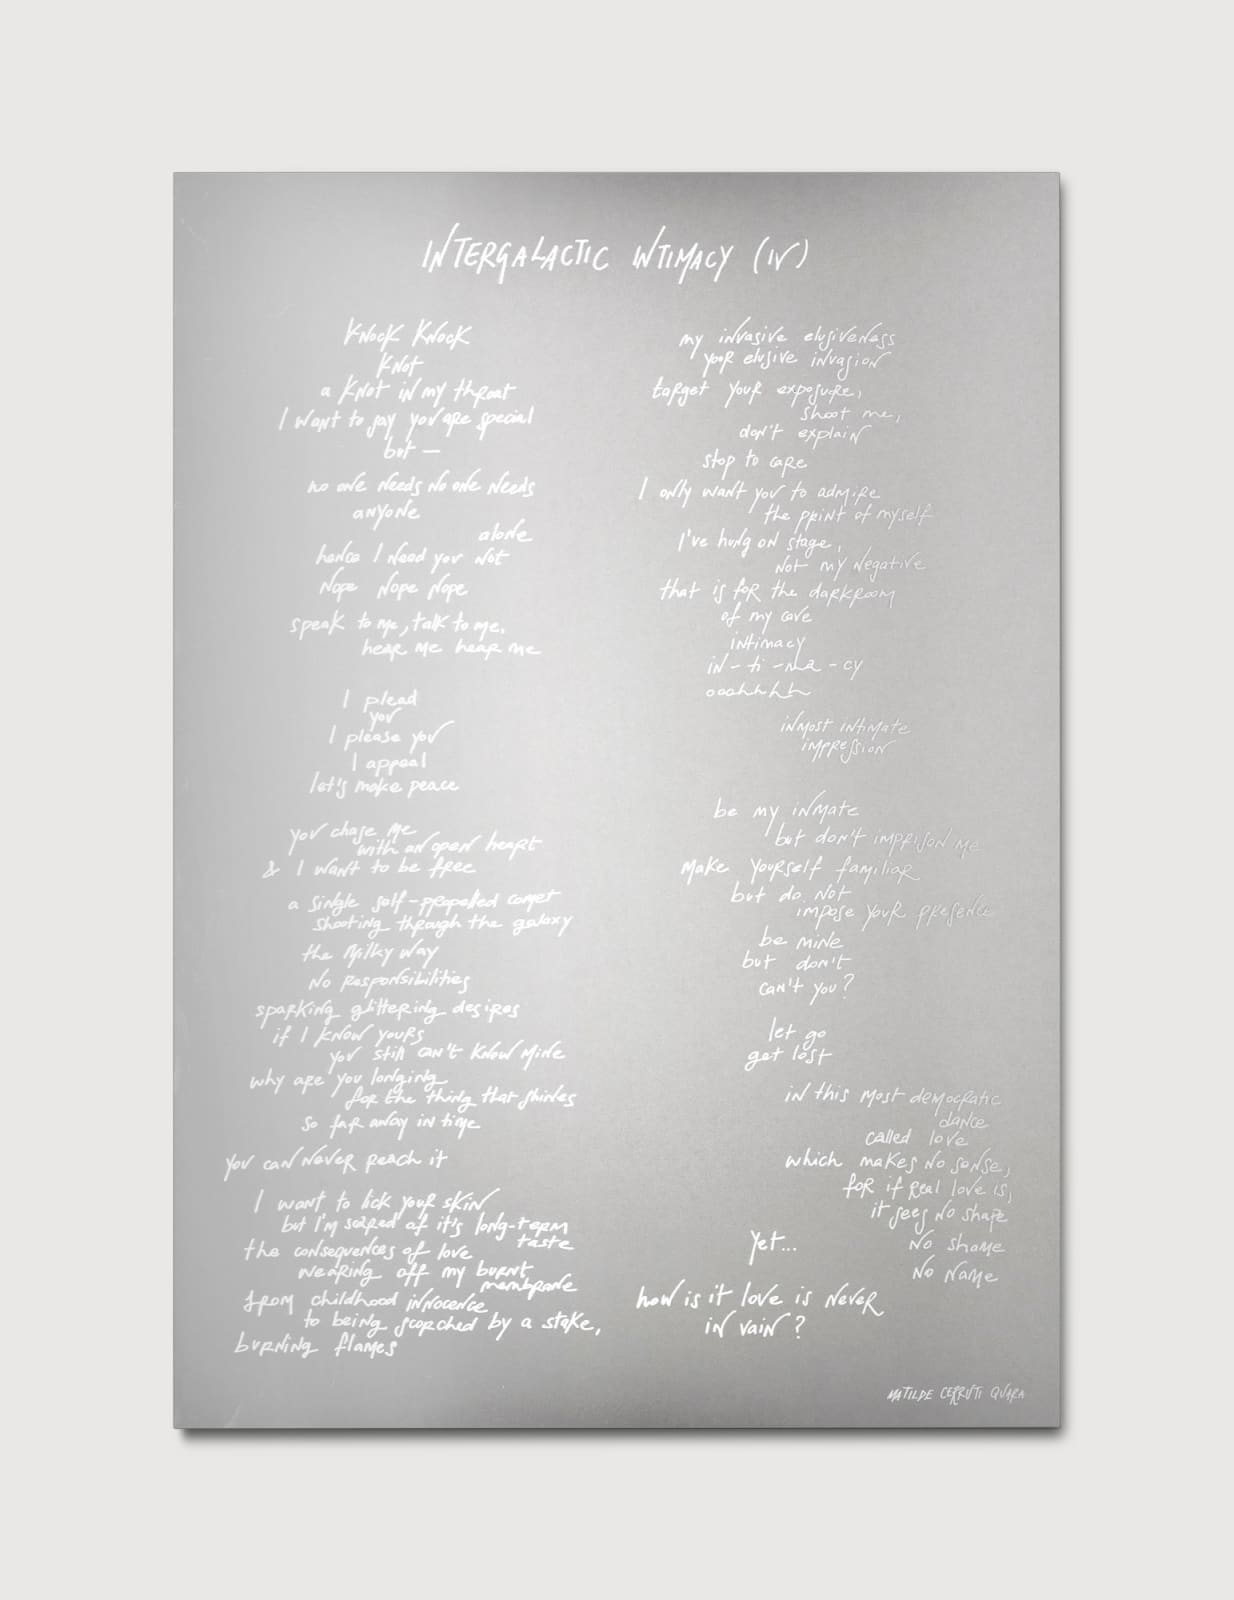 INTERGALACTIC INTIMACY (IV)
Knock Knock
Knot
a Knot in my throat
I want to say you are special
but —
no one needs no one needs
anyone
alone
hence I need you not
Nope Nope Nope
speak to me, talk to me,
hear me hear me
I plead
you
I please you
I appeal
let's make peace
you chase me
with an open heart
& I want to be free
a single self-propelled comet
shooting through the galaxy
the Milky Way
No Responsibilities
sparking glittering desires
if I know yours
you still can't know mine
why are you longing
for the thing that shines
so far away in time
you can never reach it
I want to lick your skin
but I'm scared of it's long-term
taste
the consequences of love
wearing off my burnt
membrane
from childhood innocence
to being scorched by a stake,
burning flames
my invasive elusiveness
your elusive invasion
target your exposure,
shoot me,
don't explain
stop to care
I only want you to admire
the print of myself
I've hung on stage,
not my negative
that is for the darkroom
of my cave
intimacy
in-ti-ma-cy
ooohhhh
inmost intimate
impression
be my inmate
but don't imprison me
make yourself familiar
but do not
impose your presence
be mine
but don't
can't you?
let go
get lost
in this most democratic
dance
called love
which makes no sense,
for if real love is,
it sees no shape
No shame
No Name
Yet...
how is it love is never
in vain?
MATILDE CERRUTI QUARA